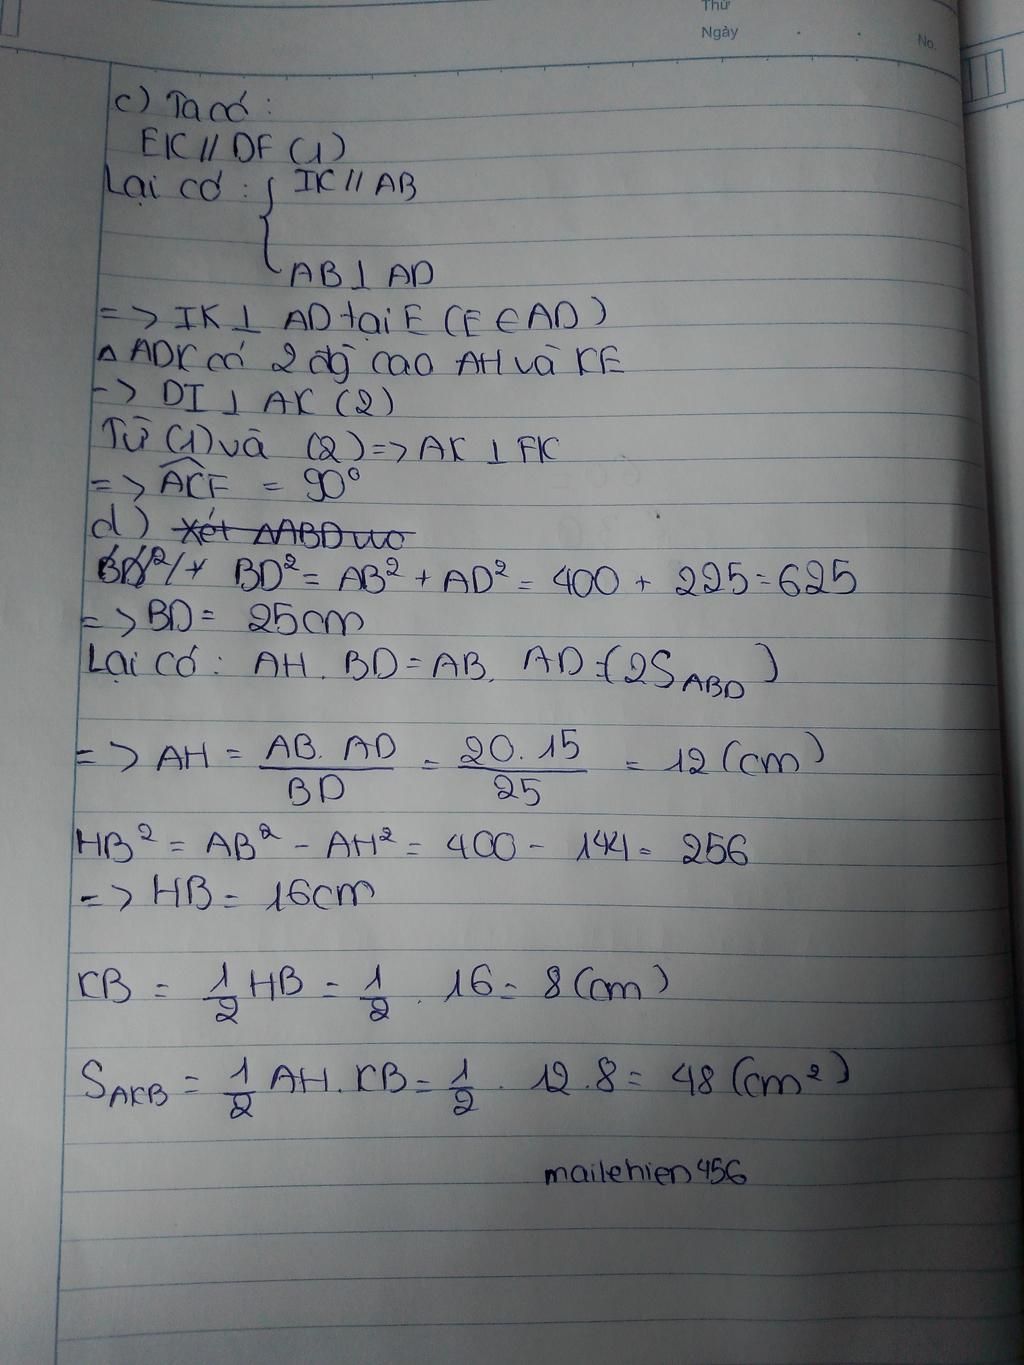 Thứ
Ngày
No.
c) Ta có :
EK // DF (1)
Lại có : { IK // AB
AB ⊥ AD
=> IK ⊥ AD tại E (E ∈ AD)
△ ADK có 2 đg̀ cao AH và KE
=> DI ⊥ AK (2)
Từ (1) và (2) => AK ⊥ FK
=> ÂKF = 90°
d) Xét △ABD vuo
BD² / + BD² = AB² + AD² = 400 + 225 = 625
=> BD = 25cm
Lại có : AH . BD = AB . AD (2S_ABD)
=> AH = AB. AD / BD = 20. 15 / 25 = 12 (cm)
HB² = AB² - AH² = 400 - 144 = 256
=> HB = 16cm
KB = 1/2 HB = 1/2 . 16 = 8 (cm)
S_AKB = 1/2 AH . KB = 1/2 . 12 . 8 = 48 (cm²)
mailehien456